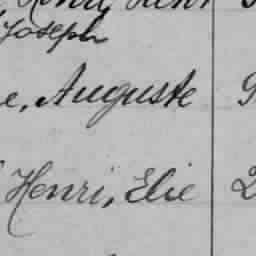 Joseph
e, Auguste
Henri, Elie 2